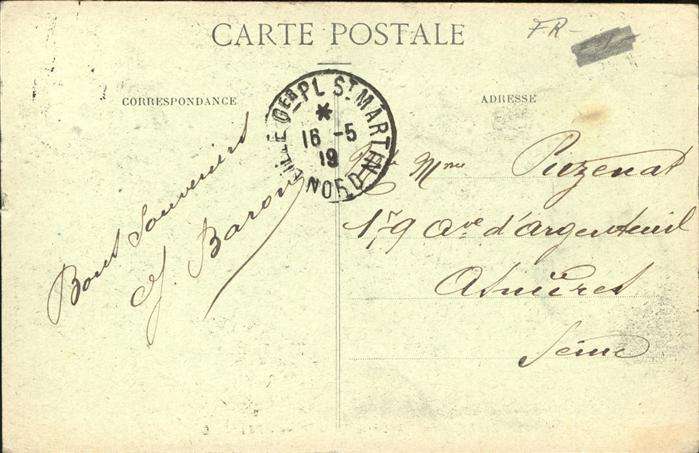 CARTE POSTALE
FR-
CORRESPONDANCE
ADRESSE
LILLE (GEB PL ST MARTIN
16 -5
19
NORD
Bons Souvenirs
J. Baron
Mme Puzenat
179 Ave d'argenteuil
Asnières
Seine